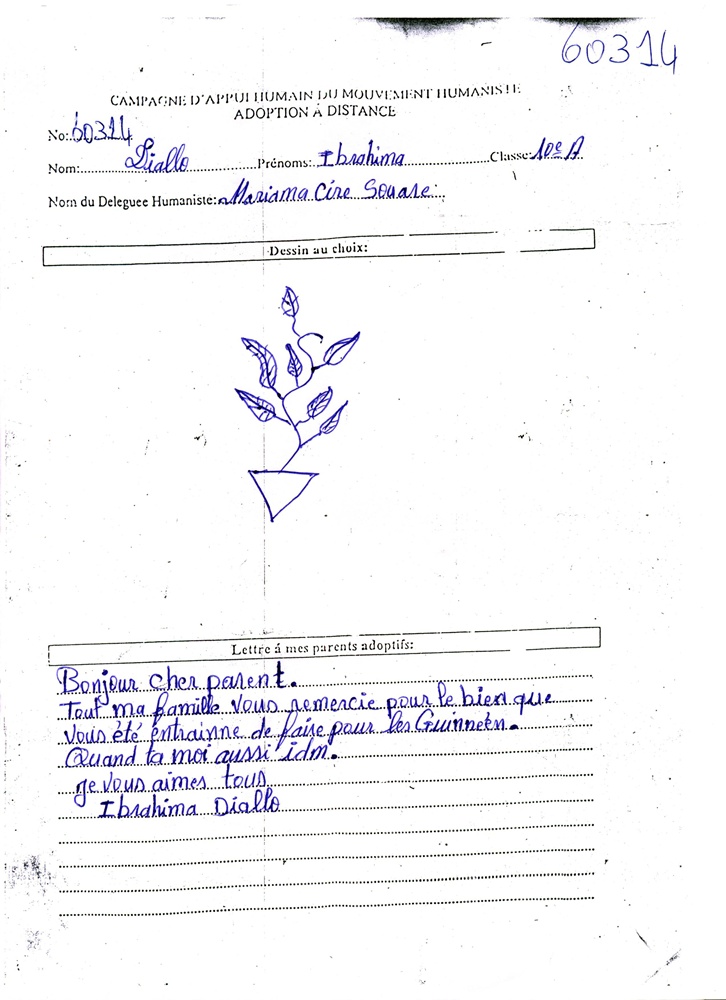 60314
CAMPAGNE D'APPUI HUMAIN DU MOUVEMENT HUMANISTE
ADOPTION A DISTANCE
No: 60314
Nom: Diallo Prénoms: Ibrahima Classe: 10e A
Nom du Deleguee Humaniste: Mariama Cire Souare
Dessin au choix:
Lettre á mes parents adoptifs:
Bonjour cher parent.
Tout ma famille vous remercie pour le bien que
vous été entrainne de faire pour les Guinneén.
Quand ta moi aussi idm.
je vous aimes tous
Ibrahima Diallo